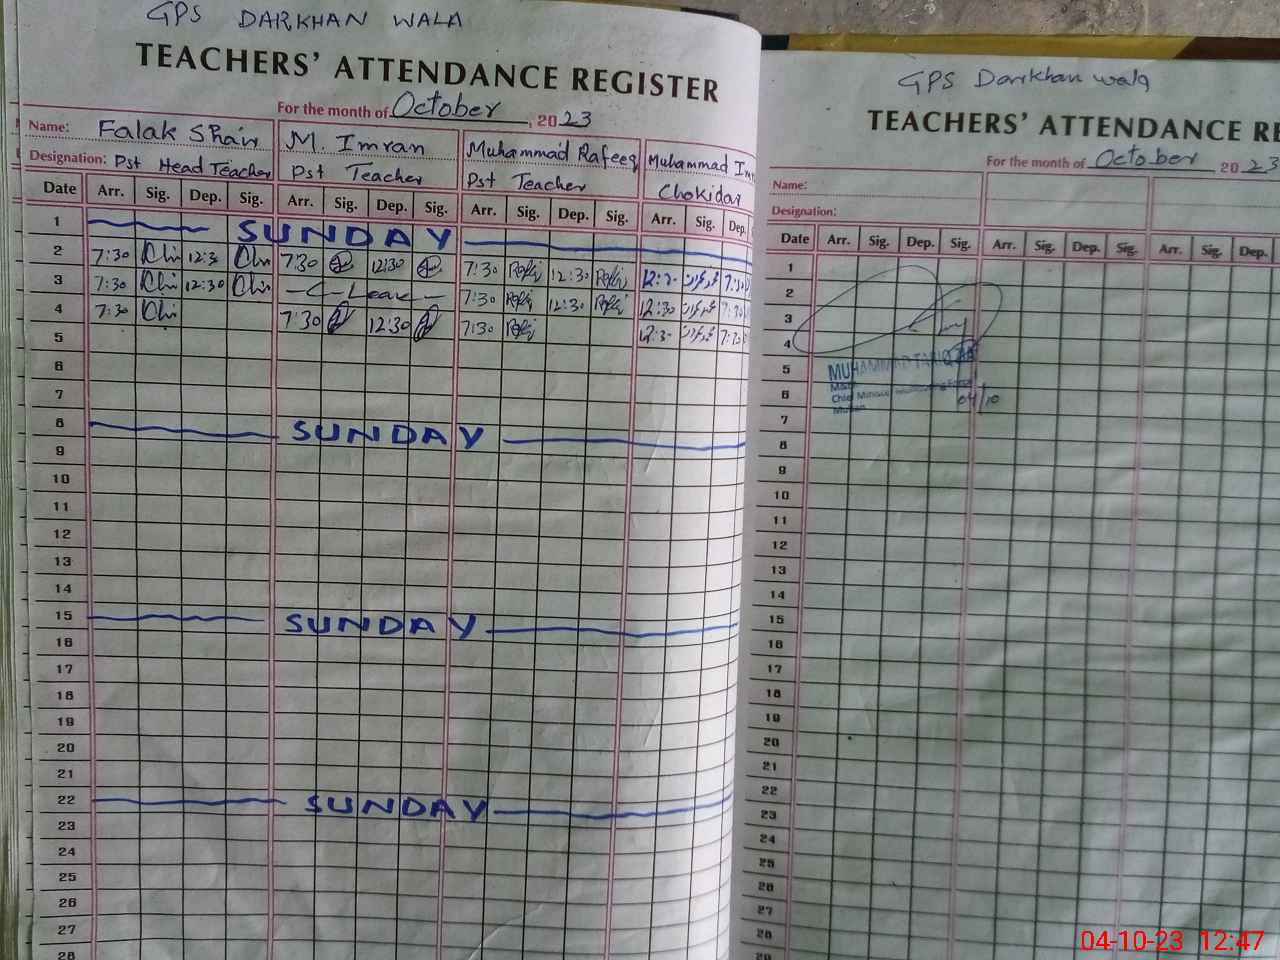 GPS DARKHAN WALA
TEACHERS' ATTENDANCE REGISTER
For the month of October, 2023
Name: Falak Shair M. Imran Muhammad Rafeeq Muhammad
Designation: Pst Head Teacher Pst Teacher Pst Teacher Chokidar
Date Arr. Sig. Dep. Sig. Arr. Sig. Dep. Sig. Arr. Sig. Dep. Sig. Arr. Sig. Dep.
1 SUNDAY
2 7:30 12:3 7:30 12:30 7:30 12:30
3 7:30 12:30 C-Leave 7:30 12:30 12:30
4 7:30 7:30 12:30 7:30
5
6
7
8 SUNDAY
9
10
11
12
13
14
15 SUNDAY
16
17
18
19
20
21
22 SUNDAY
23
24
25
26
27
28
GPS Darkhan wala
TEACHERS' ATTENDANCE RE
For the month of October 2023
Name:
Designation:
Date Arr. Sig. Dep. Sig. Arr. Sig. Dep. Sig. Arr. Sig. Dep.
1
2
3
4
5 MUHAMMAD TARIQ
6 Chief
04/10
7 Multan
8
9
10
11
12
13
14
15
16
17
18
19
20
21
22
23
24
25
26
27
28
29
04-10-23 12:47